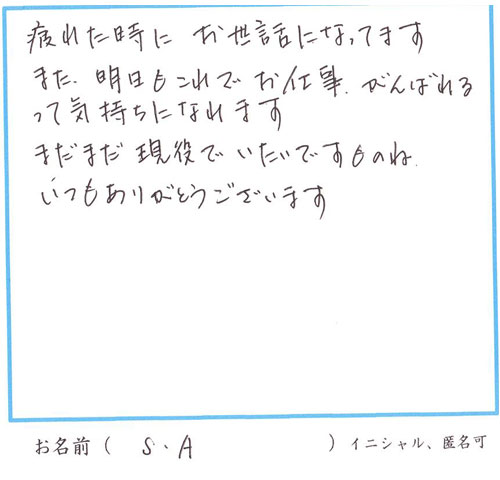 疲れた時に お世話になってます
また、明日もこれで お仕事、がんばれる
って気持ちになれます
まだまだ 現役で いたいですものね、
いつもありがとうございます
お名前 ( S・A ) イニシャル、匿名可